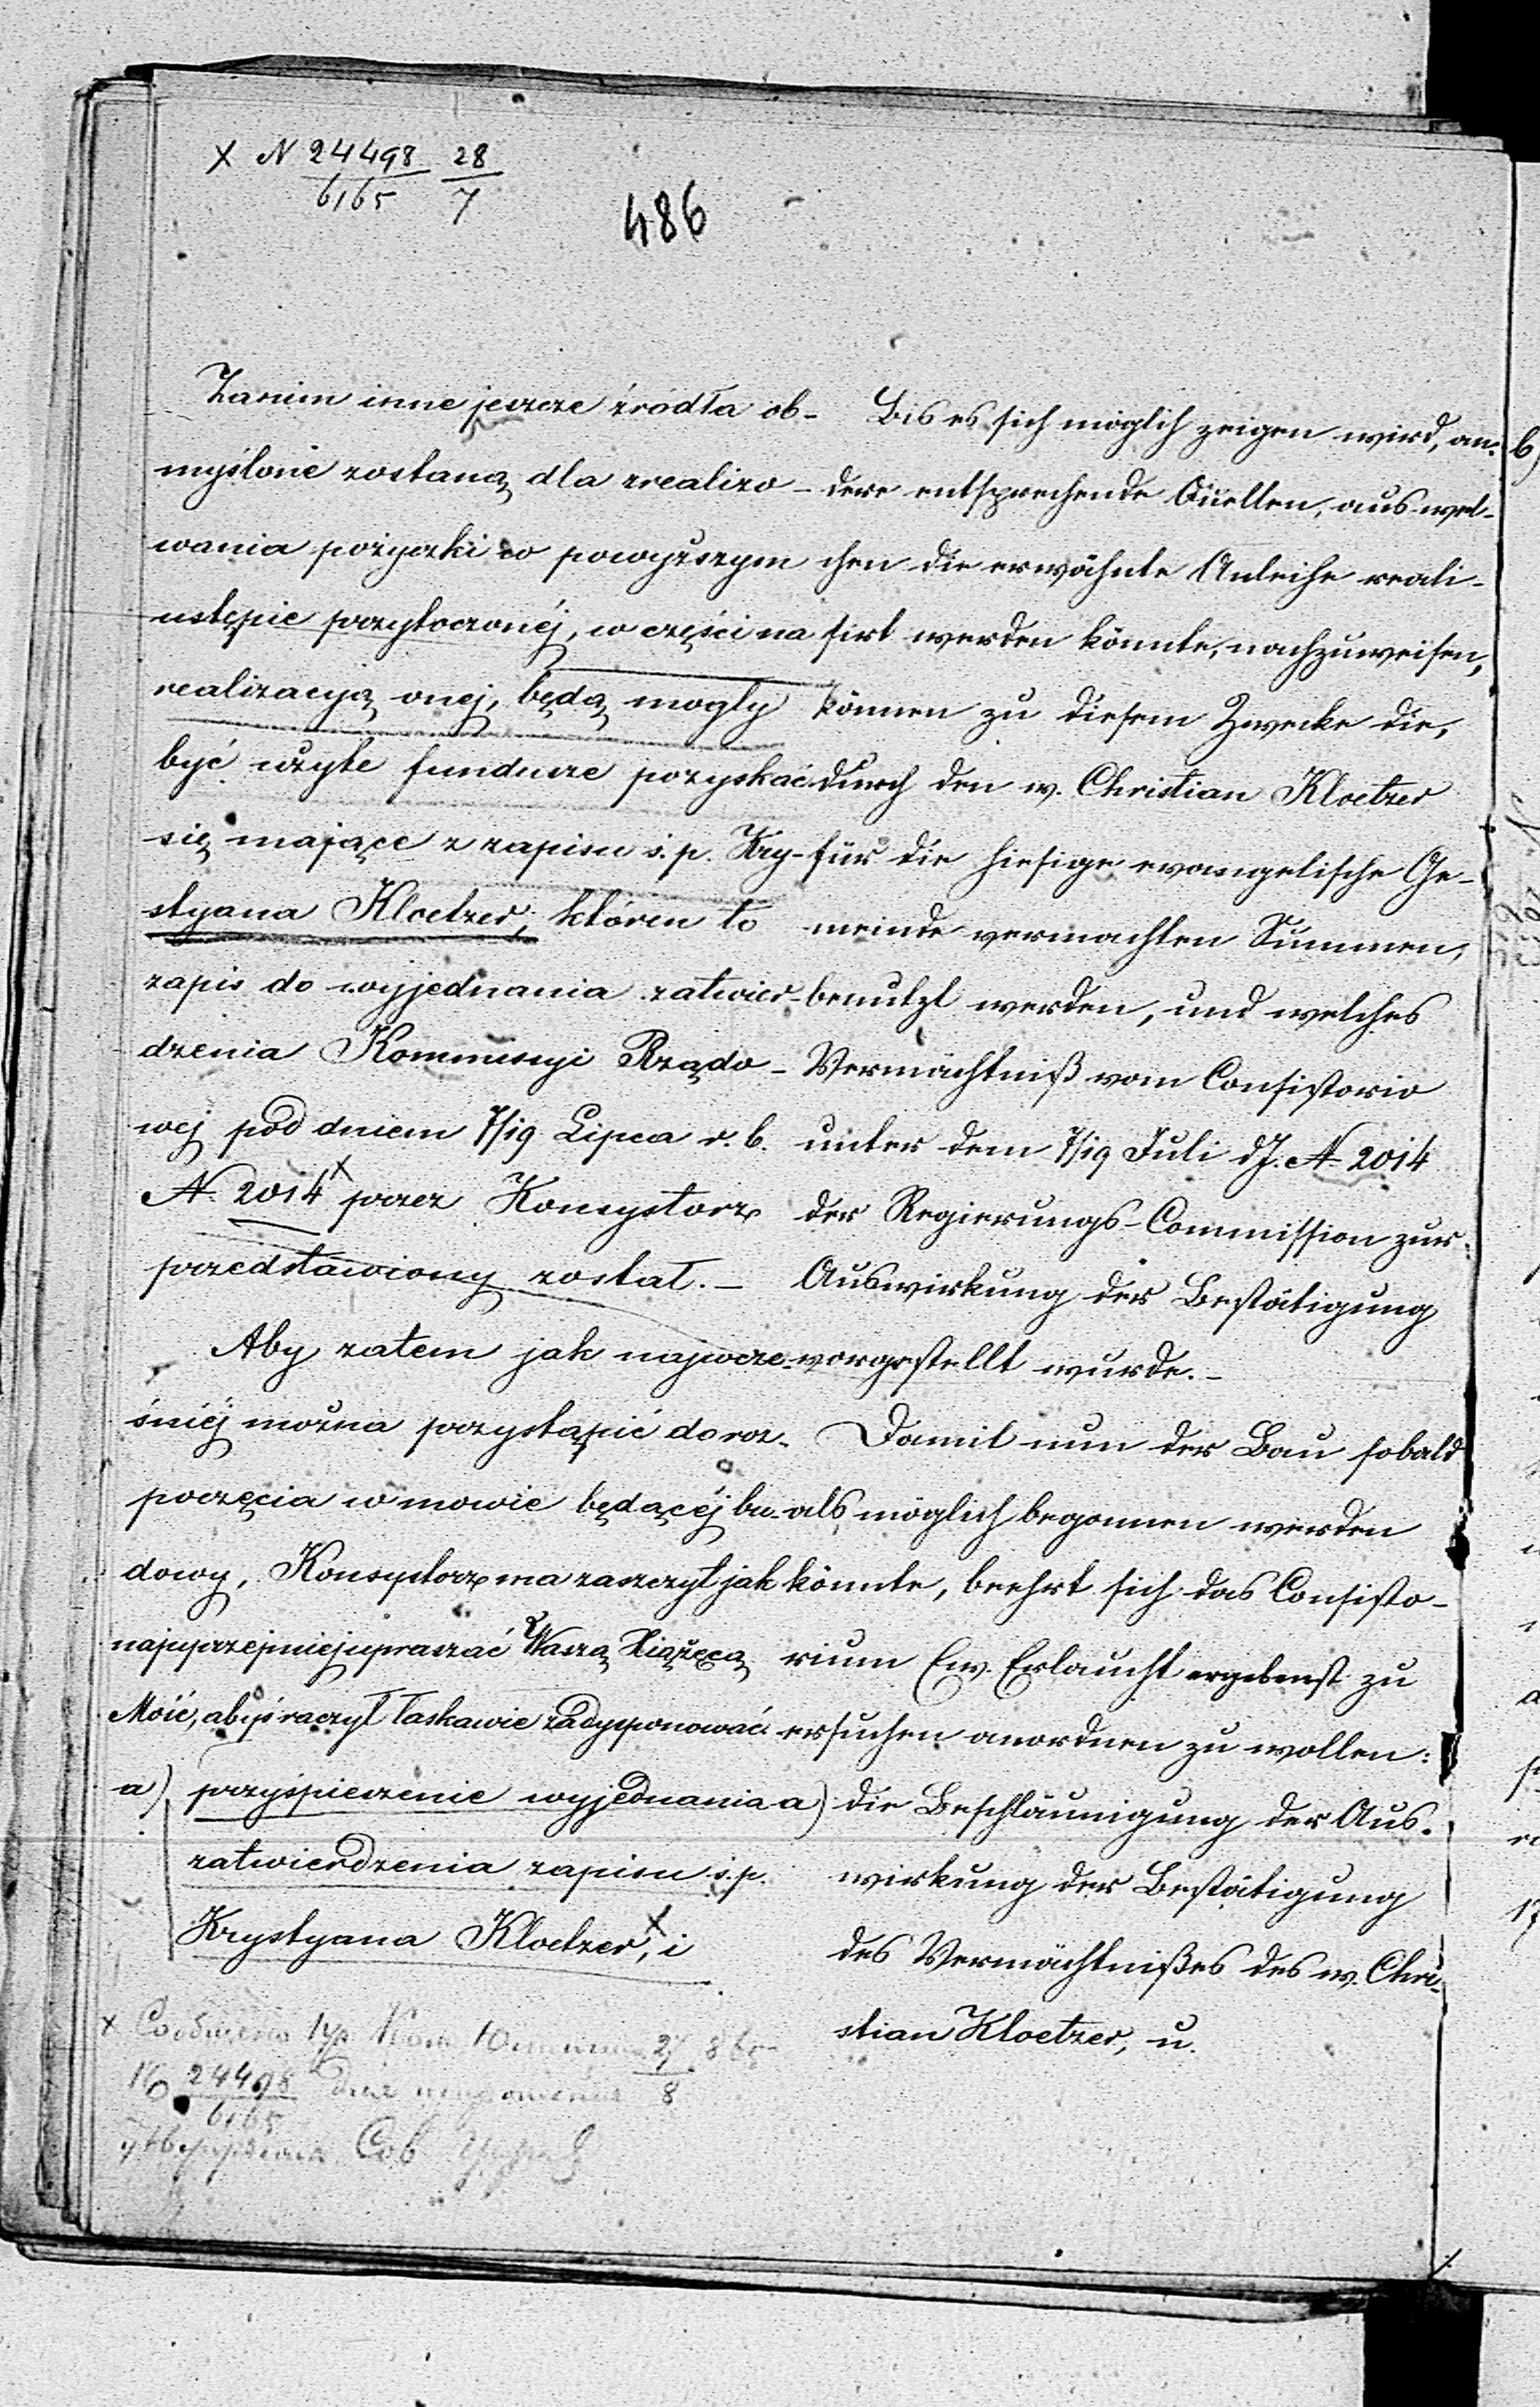 X N 24498 28
6165 7
486
Zanim inne jeszcze źródła ob-
myślone zostaną dla zrealizo-
wania pożyczki w powyższym
ustępie przytoczonéj, w części na
realizacyą onej, będą mogły
być użyte fundusze pozyskać
się mające z zapisu ś. p. Kry-
styana Kloetzer, któren to
zapis do wyjednania zatwier-
dzenia Kommissyi Rządo-
wej pod dniem 7/19 Lipca r. b.
N. 2014 X przez Konsystorz
przedstawiony został. –
Aby zatem jak najwcze-
śniéj można przystąpić do roz-
poczęcia w mowie będącéj bu-
dowy, Konsystorz ma zaszczyt jak
najuprzejmiej upraszać Waszą Xiążęcą
Mość, abyś raczył łaskawie zadysponować
a) przyśpieszenie wyjednania
zatwierdzenia zapisu ś. p.
Krystyana Kloetzer, X i
Bis es sich möglich zeigen wird, an-
dere entsprechende Quellen, aus wel-
chen die erwähnte Anleihe reali-
sirt werden könnte, nachzuweisen,
können zu diesem Zwecke die,
durch den w. Christian Kloetzer
für die hiesige evangelische Ge-
meinde vermachten Summen,
benutzt werden, und welches
Vermächtniß vom Consistorio
unter dem 7/19 Juli d J. N. 2014
der Regierungs-Commission zur
Auswirkung der Bestätigung
vorgestellt wurde. –
Damit nun der Bau sobald
als möglich begonnen werden
könnte, beehrt sich das Consisto-
rium Ew. Erlaucht ergebenst zu
ersuchen anordnen zu wollen:
a) die Beschläunigung der Aus-
wirkung der Bestätigung
des Vermächtnißes des w. Chri-
stian Kloetzer, u.
x Сообщено 27
No 24498 8
6165
b)